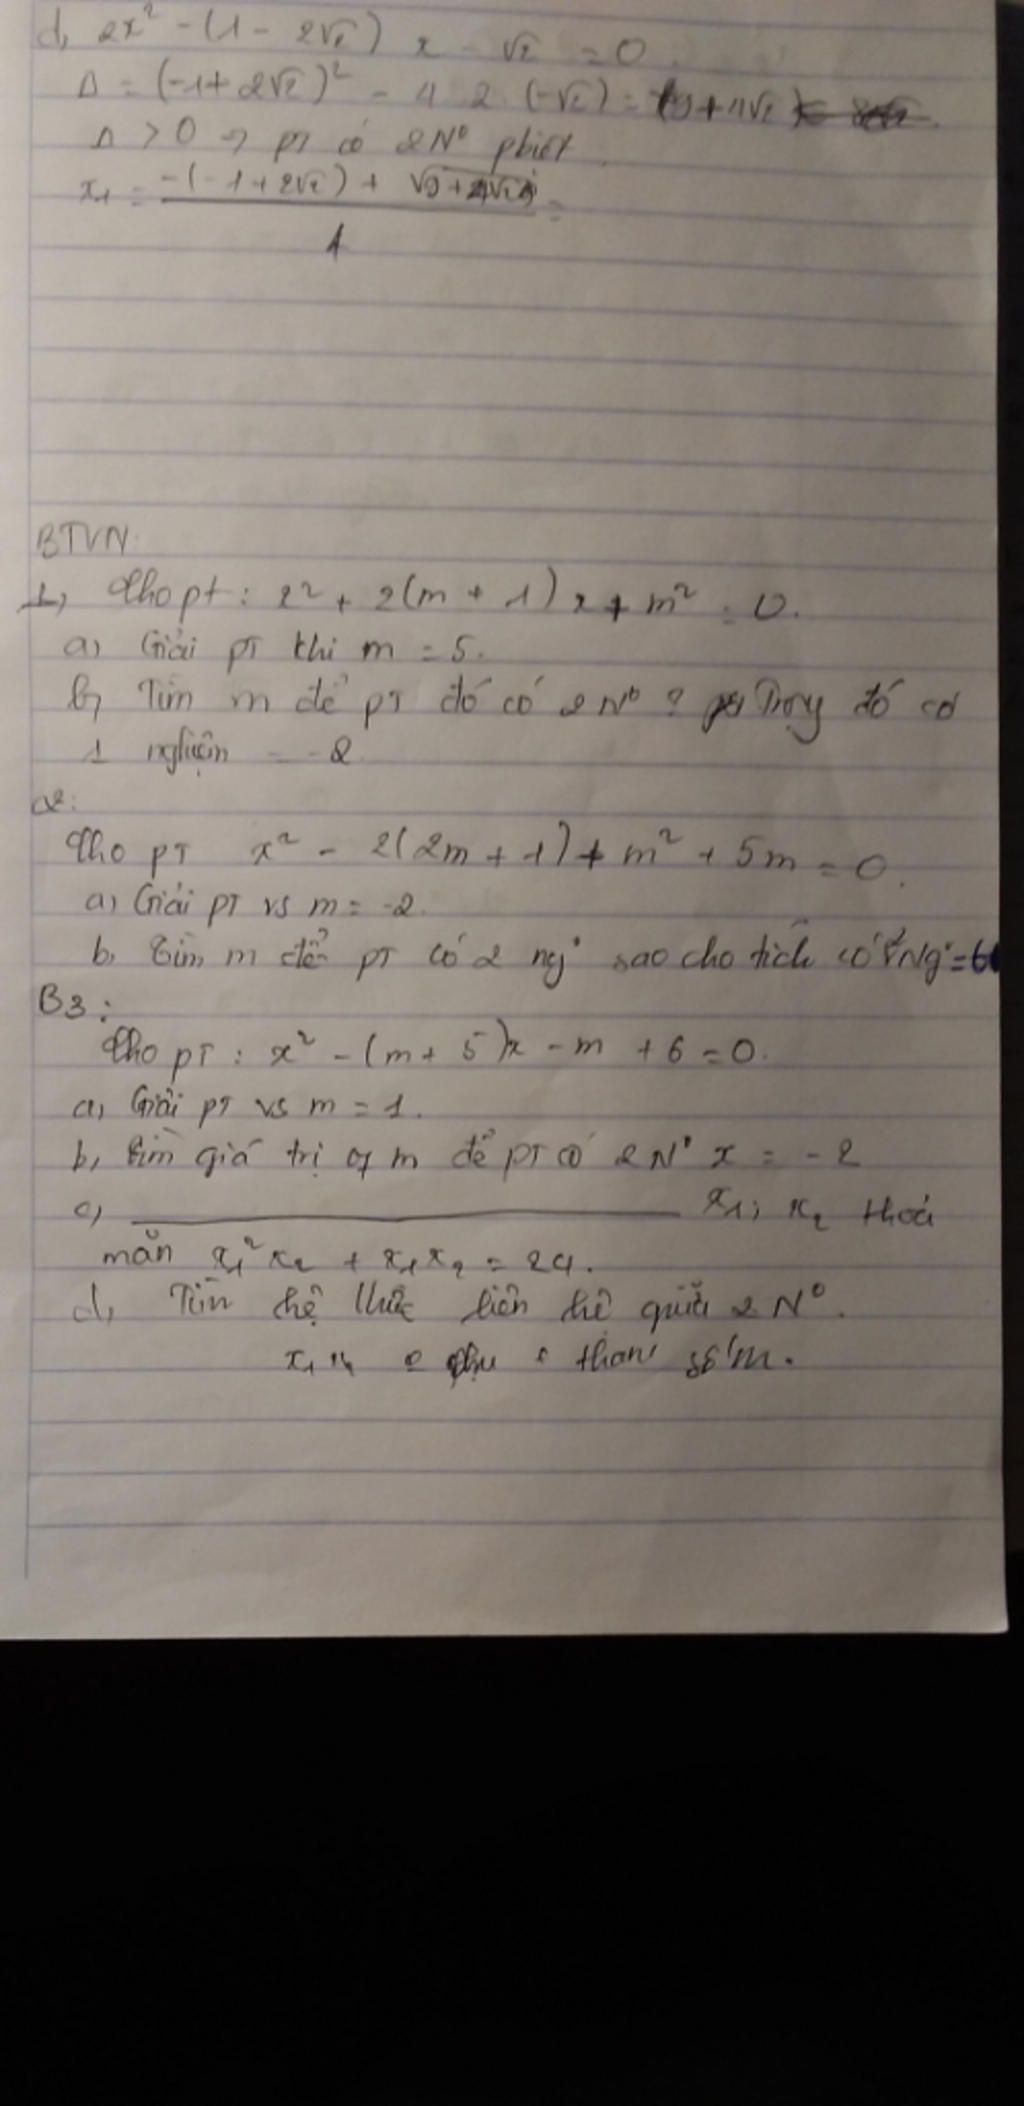 d, 2x² - (1 - 2√2) x - √2 = 0
Δ = (-1 + 2√2)² - 4 2 (-√2) = 9 + 4√2
Δ > 0 → PT có 2 N⁰ pbiệt
x₁ = -(-1 + 2√2) + √9+4√2 =
4
BTVN
1, Cho pt : x² + 2(m + 1) x + m² = 0.
a) Giải PT khi m = 5.
b) Tìm m để PT đó có 2 N⁰ ? Trong đó có
1 nghiệm = -2
2:
Cho PT x² - 2(2m + 1) + m² + 5m = 0.
a) Giải PT vs m = -2.
b, Tìm m để PT có 2 ng⁰ sao cho tích có Ng⁰ = 6
B3 :
Cho PT : x² - (m + 5)x - m + 6 = 0.
a) Giải PT vs m = 1.
b, Tìm giá trị of m để PT có 2 N⁰ x = -2
c) x₁ ; x₂ thoả
mãn x₁²x₂ + x₁x₂ = 24.
d, Tìm hệ thức liên hệ giữa 2 N⁰.
tham số m.